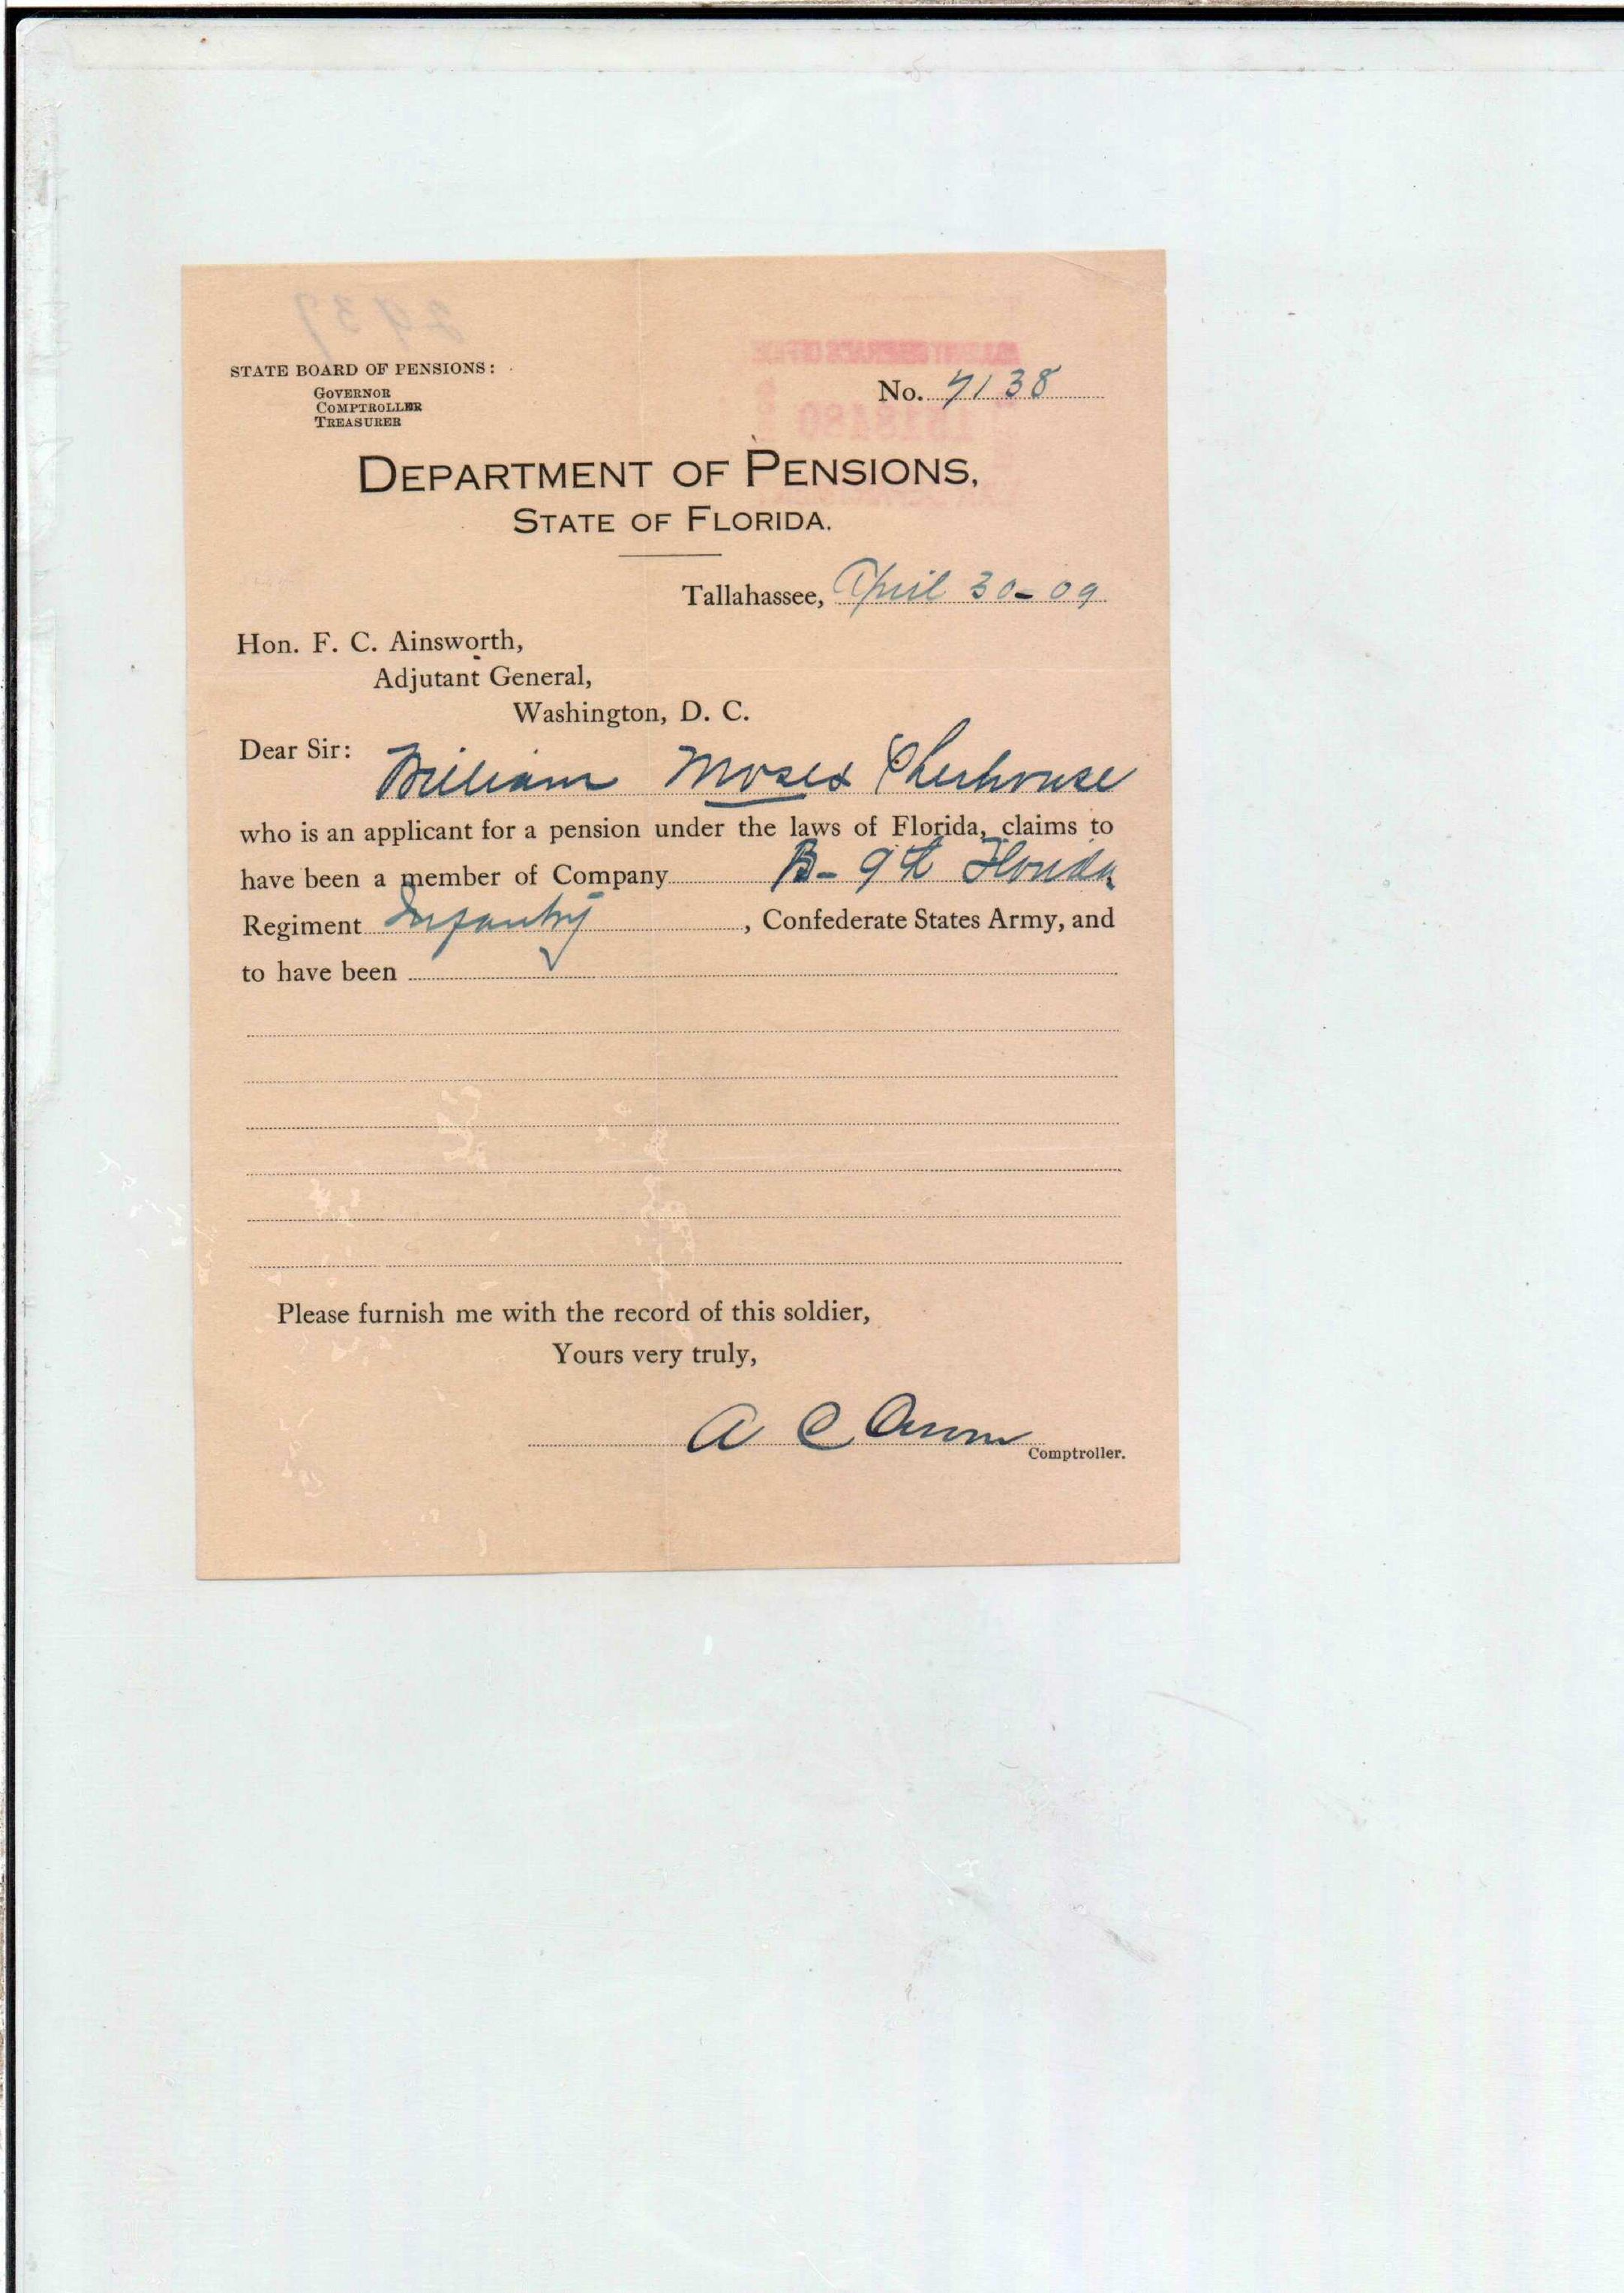 STATE BOARD OF PENSIONS:
GOVERNOR
COMPTROLLER
TREASURER
No. 7138
DEPARTMENT OF PENSIONS,
STATE OF FLORIDA.
Tallahassee, April 30-09
Hon. F. C. Ainsworth,
Adjutant General,
Washington, D. C.
Dear Sir:
William Moses
who is an applicant for a pension under the laws of Florida, claims to
have been a member of Company B- 9th Florida
Regiment Infantry, Confederate States Army, and
to have been
Please furnish me with the record of this soldier,
Yours very truly,
A C
Comptroller.